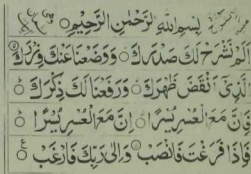 بِسْمِ اللهِ الرَّحْمٰنِ الرَّحِيْمِ
اَلَمْ نَشْرَحْ لَكَ صَدْرَكَ وَوَضَعْنَا عَنْكَ وِزْرَكَ
الَّذِيْٓ اَنْقَضَ ظَهْرَكَ وَرَفَعْنَا لَكَ ذِكْرَكَ
فَاِنَّ مَعَ الْعُسْرِ يُسْرًا اِنَّ مَعَ الْعُسْرِ يُسْرًا
فَاِذَا فَرَغْتَ فَانْصَبْ وَاِلٰى رَبِّكَ فَارْغَبْ